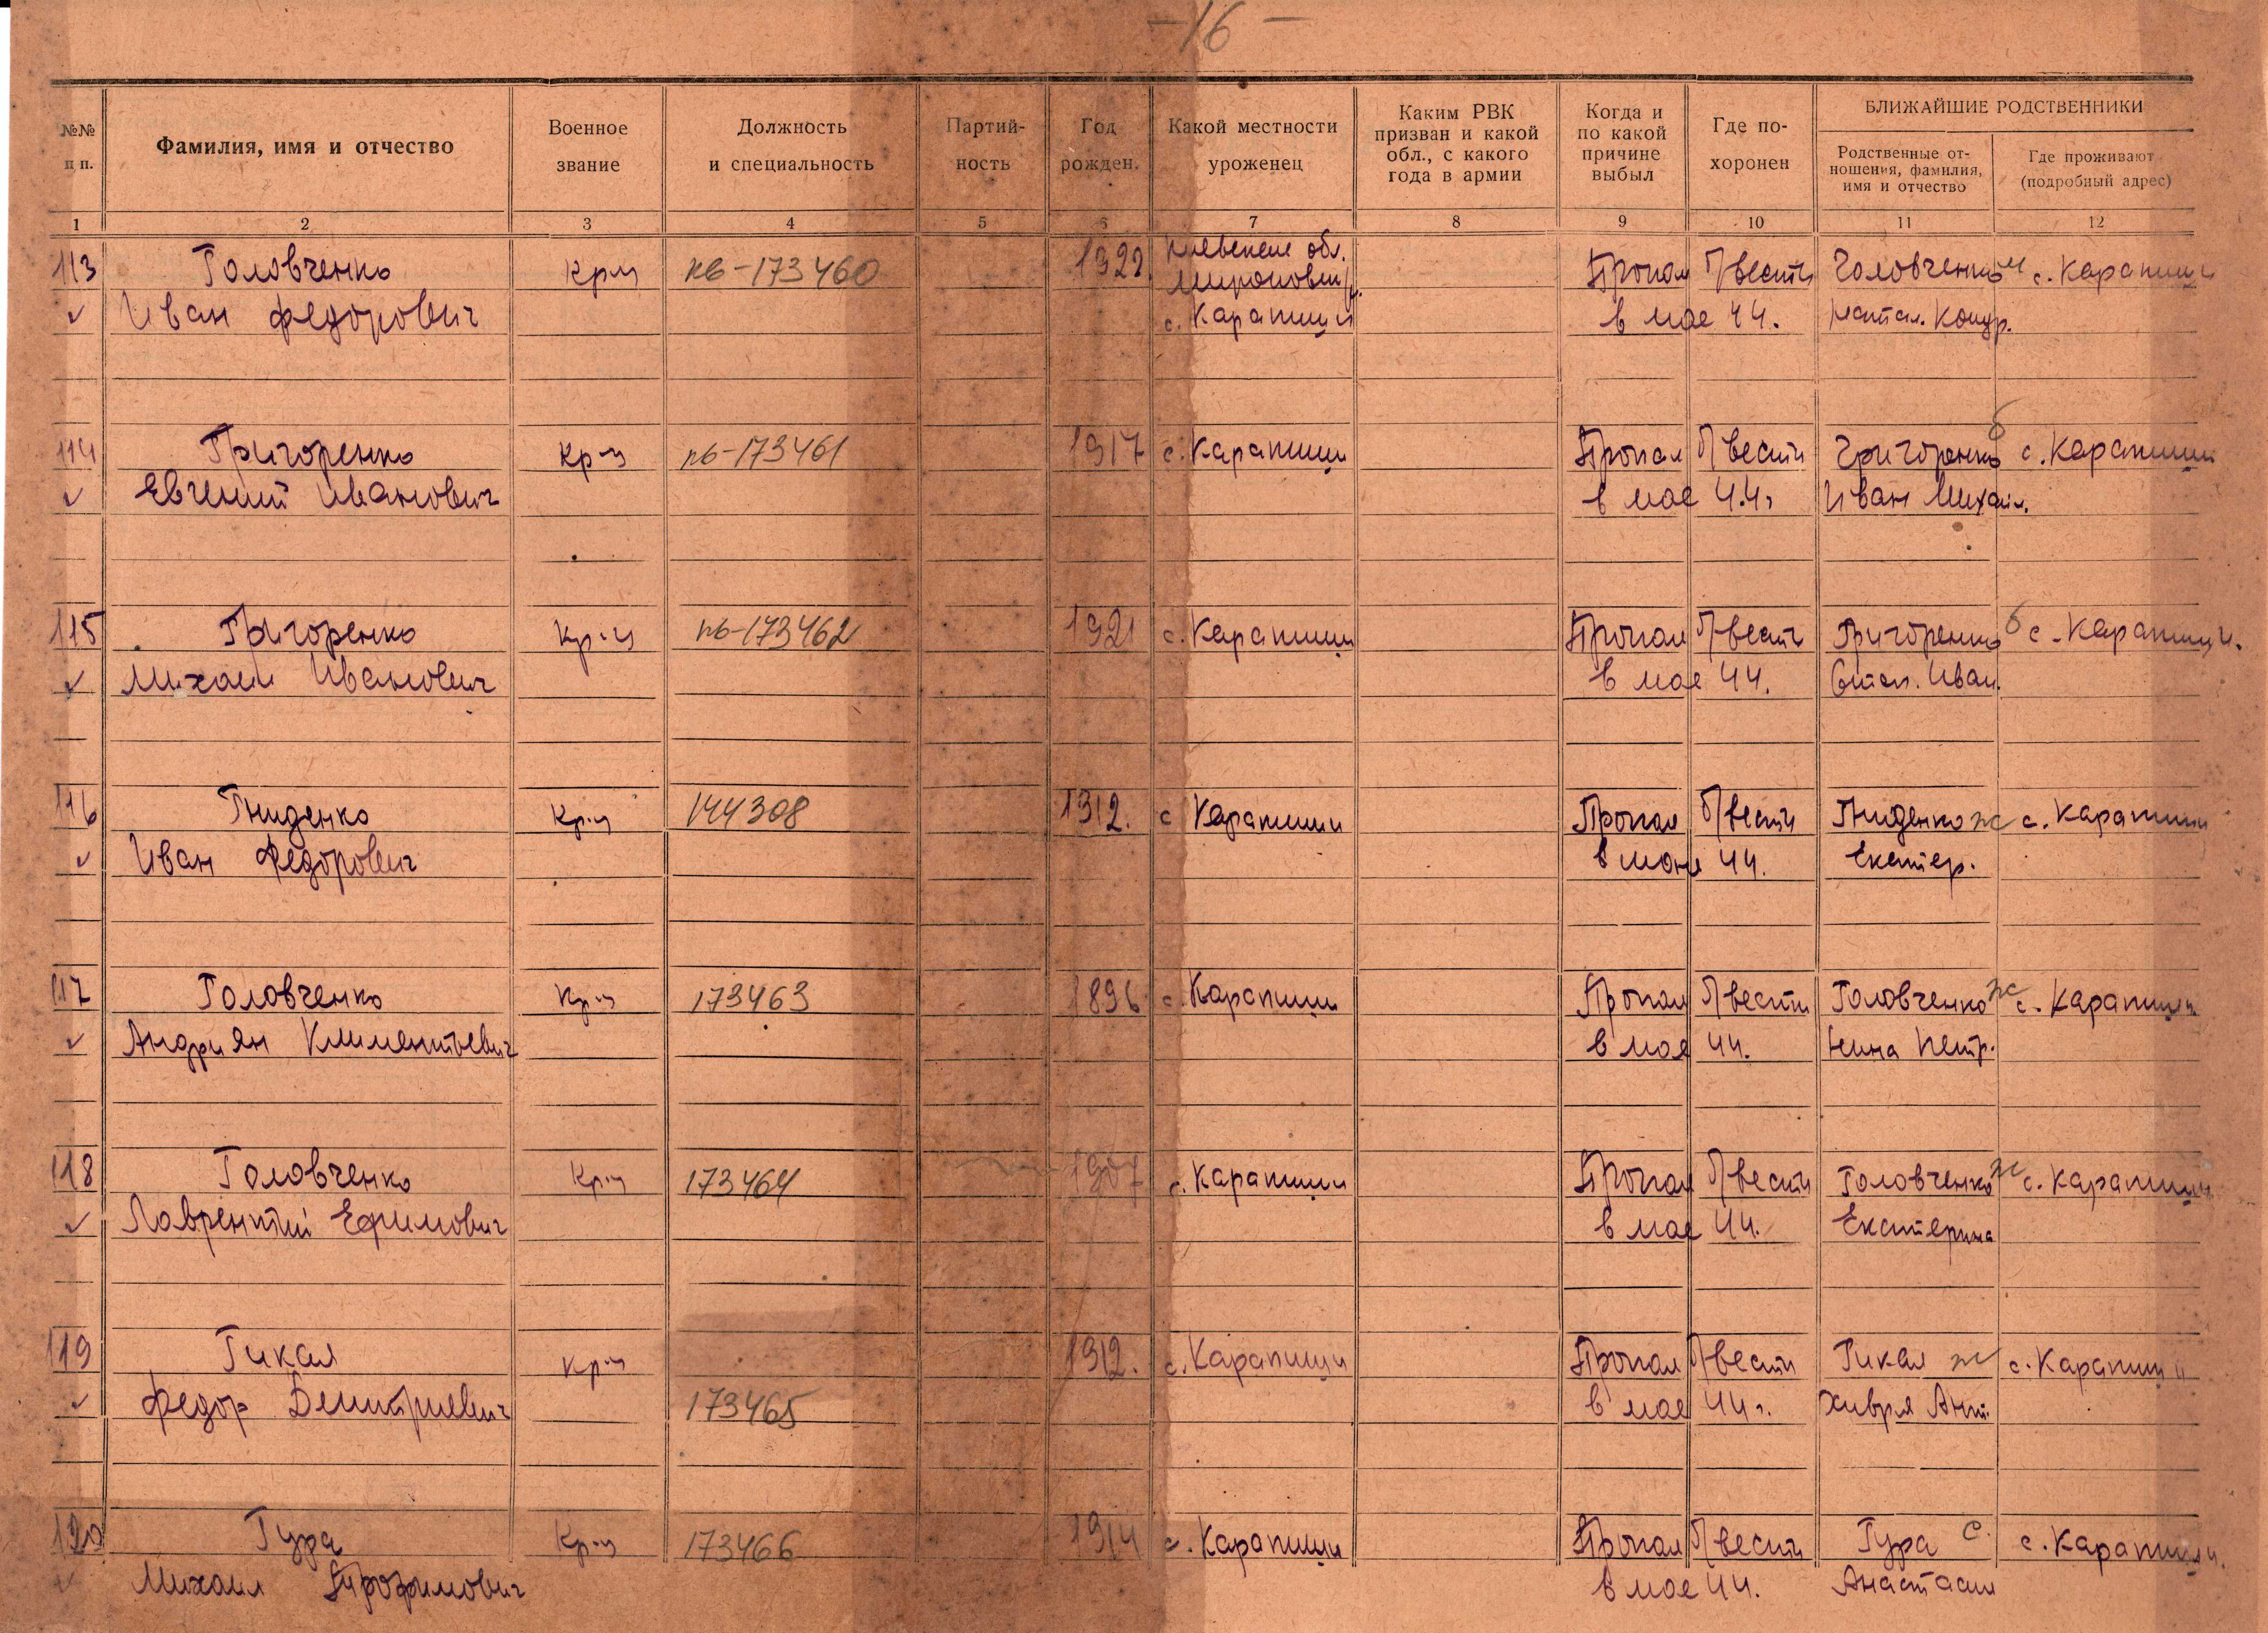 -16-
№№ п п.
Фамилия, имя и отчество
Военное звание
Должность и специальность
Партий-ность
Год рожден.
Какой местности уроженец
Каким РВК призван и какой обл., с какого года в армии
Когда и по какой причине выбыл
Где по-хоронен
БЛИЖАЙШИЕ РОДСТВЕННИКИ
Родственные от-ношения, фамилия, имя и отчество
Где проживают (подробный адрес)
1 2 3 4 5 6 7 8 9 10 11 12
Киевской обл.
113 Головченко кр-ц пб-173460 1922 Мироновск. Пропал б/вести Головченко м с. Карапиши
✓ Иван Федорович с. Карапиши в мае 44. Конд.
114 Григоренко кр-ц пб-173461 1917 с. Карапиши Пропал б/вести Григоренко б с. Карапиши
✓ Евгений Иванович в мае 44г Иван Михаил.
115 Григоренко кр-ц пб-173462 1921 с. Карапиши Пропал б/вест Григоренко б с. Карапиши.
✓ Михаил Иванович в мае 44. Степ. Иван.
116 Гниденко кр-ц 144308 1912. с Карапиши Пропал б/вести Гниденко ж с. Карапиши
✓ Иван Федорович в 44. Екатер.
117 Головченко кр-ц 173463 1896 с. Карапиши Пропал б/вести Головченко ж с. Карапиши
✓ Андриян Климентьевич в мае 44. Нина Петр.
118 Головченко кр-ц 173464 1907 с. Карапиши Пропал б/вести Головченко ж с. Карапиши
✓ Лаврентий Ефимович в мае 44. Екатерина
119 Гикал кр-ц 1912. с. Карапиши Пропал б/вести Гикал ж с. Карапиши
✓ Федор Дмитриевич 173465 в мае 44г. Хивря Ант.
120 Гура кр-ц 173466 1914 с. Карапиши Пропал б/вести Гура с. с. Карапиши.
✓ Михаил Трофимович в мае 44. Анастасия